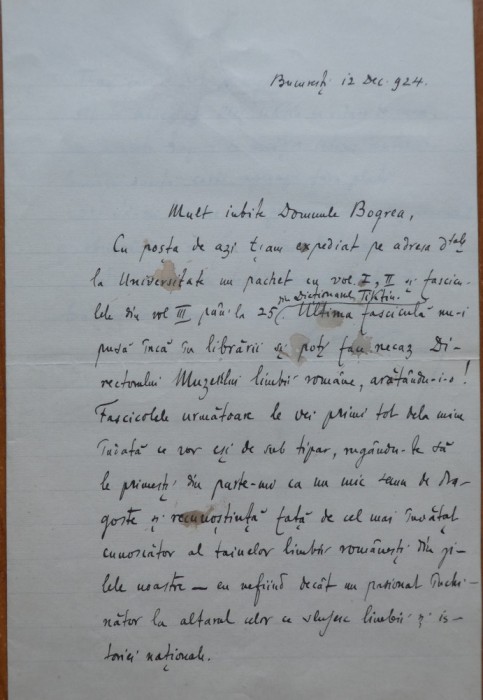 București 12 Dec. 924.
Mult iubite Domnule Bogrea,
Cu poșta de azi ți-am expediat pe adresa Dtale
la Universitate un pachet cu vol I, II și fascico-
din Dicționarul Tiktin.
lele din vol III pân' la 25. Ultima fasciculă nu-i
pusă încă în librării și poți face necaz Di-
rectorului Muzeului limbii române, arătându-i-o!
Fascicolele următoare le vei primi tot dela mine
îndată ce vor eși de sub tipar, rugându-te să
le primești din parte-mi ca un mic semn de dra-
goste și recunoștință față de cel mai învățat
cunoscător al tainelor limbii românești din zi-
lele noastre — eu nefiind decât un pasionat închi-
nător la altarul celor ce slujesc limbii și is-
toriei naționale.